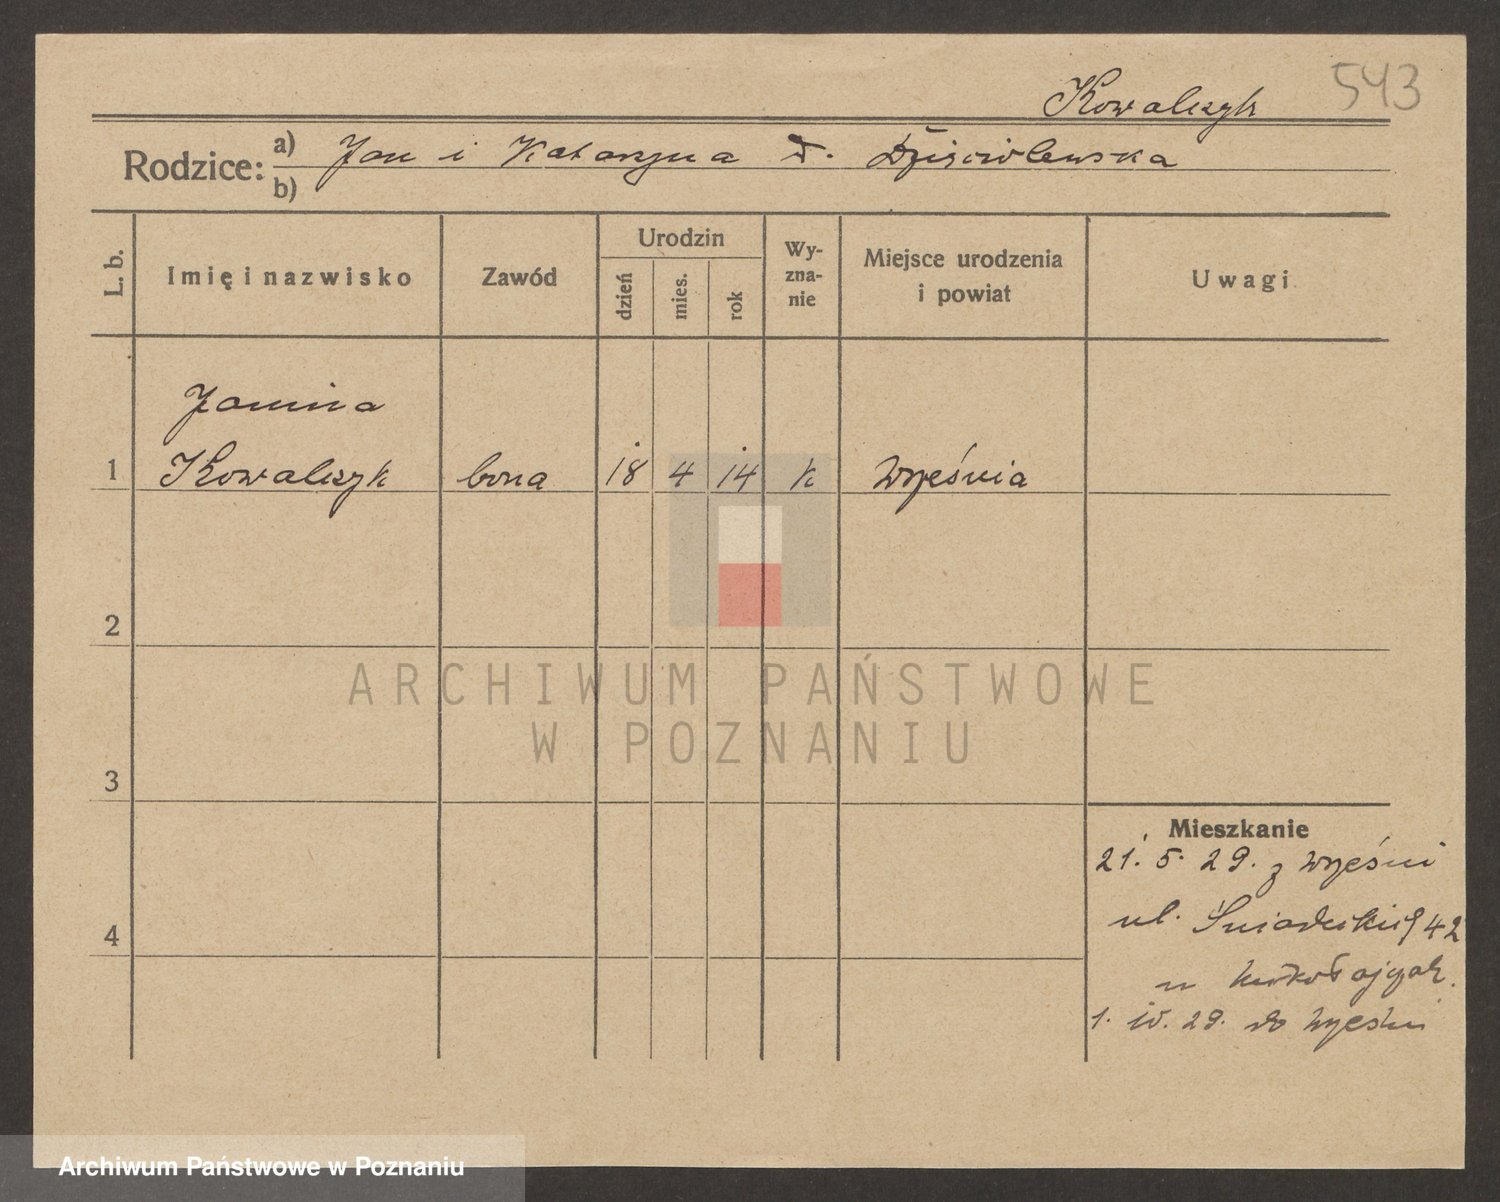 Kowalczyk 543
Rodzice: a) Jan i Katarzyna d.
b)
L. b. Imię i nazwisko Zawód Urodzin dzień mies. rok Wy-zna-nie Miejsce urodzenia i powiat Uwagi
Janina
1 Kowalczyk bona 18 4 14 k Września
2
3
4
Mieszkanie
21. 5. 29. z Wrześni
ul. Śniadeckich 42
u
29. do Wrześni
ARCHIWUM PAŃSTWOWE
W POZNANIU
Archiwum Państwowe w Poznaniu